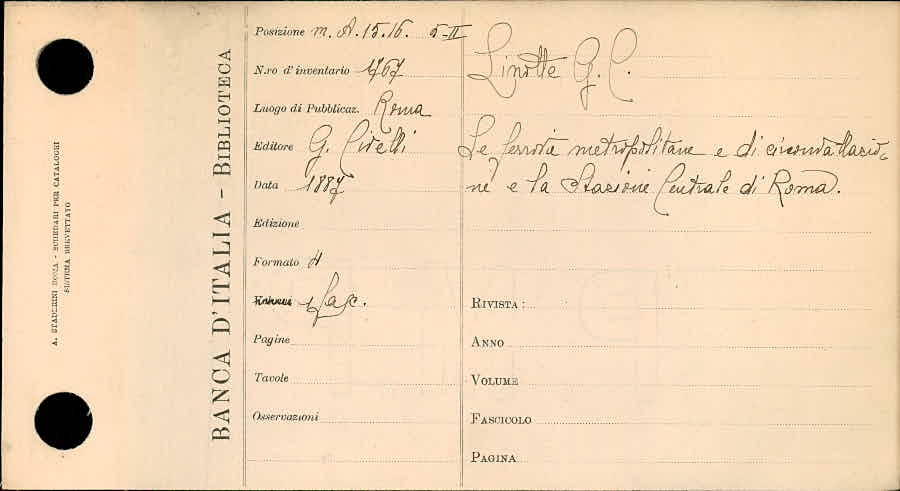 A. STADERINI ROMA - SCHEDARI PER CATALOGHI
SISTEMA BREVETTATO
BANCA D'ITALIA - BIBLIOTECA
Posizione m. A. 15.16. 5-II
N.ro d'inventario 1767
Luogo di Pubblicaz. Roma
Editore G. Civelli
Data 1887
Edizione
Formato 4
1 Fasc.
Pagine
Tavole
Osservazioni
Linotte G. C.
Le ferrovie metropolitane e di circonvallazio-
ne e la Stazione Centrale di Roma.
RIVISTA:
ANNO
VOLUME
FASCICOLO
PAGINA